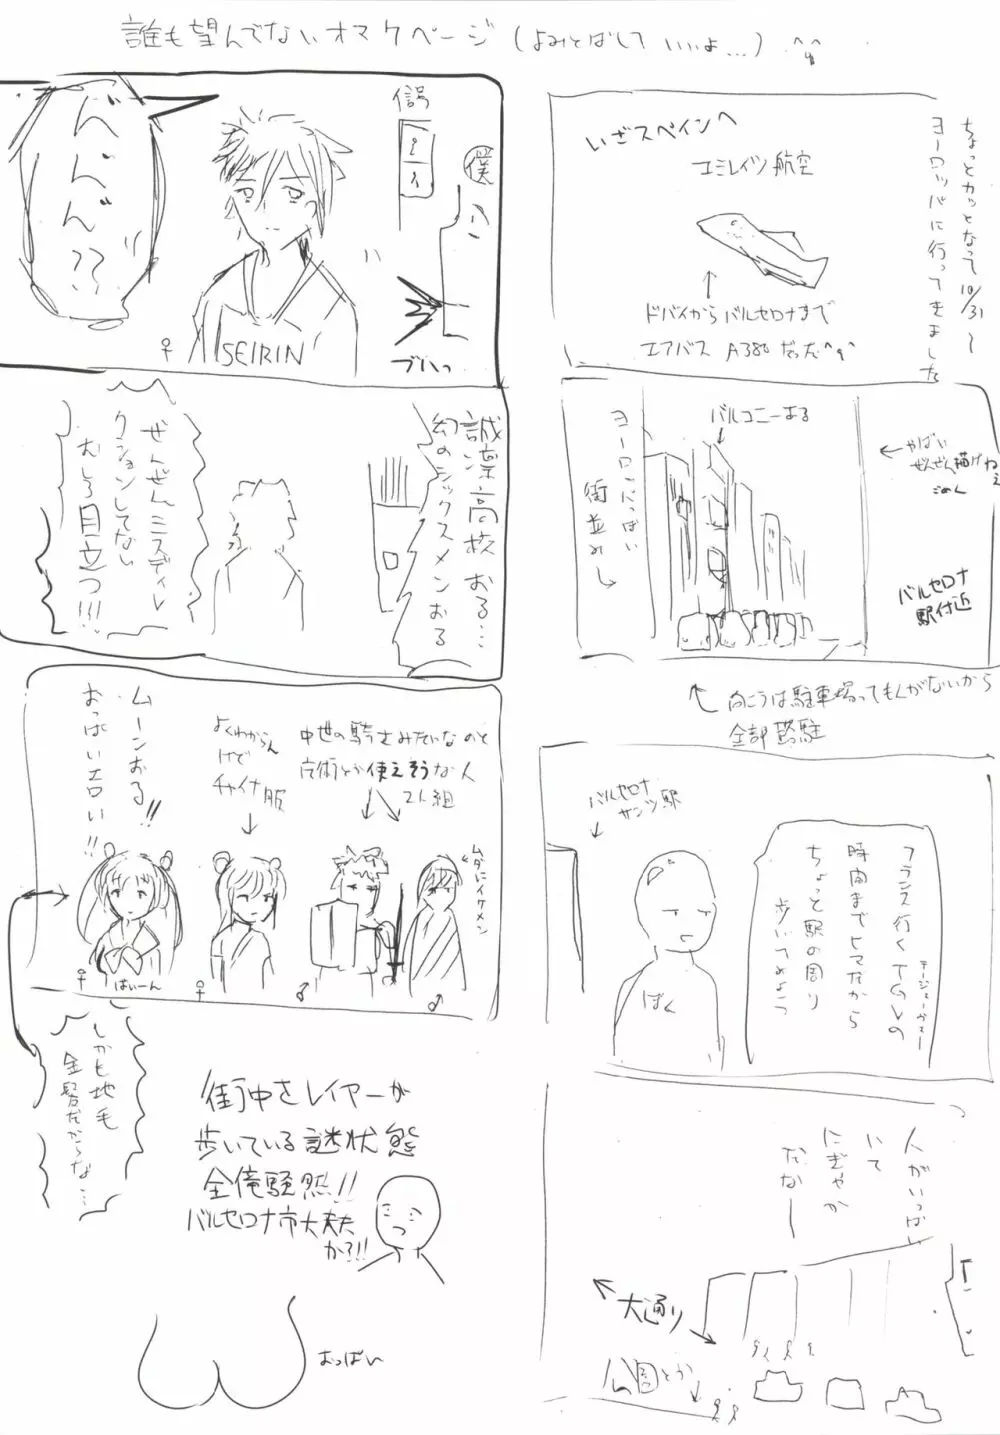 誰も望んでないオマケページ(よみとばしていいよ…)
ちょっとカッとなって10/31〜
ヨーロッパに行ってきました
いざスペインへ
エミレイツ航空
ドバイからバルセロナまで
エアバス A380だった
バルコニーある
ヨーロッパっぽい
街並み→
やばい
ぜんぜん描けねぇ
ごめん
バルセロナ
駅付近
向こうは駐車場ってもんがないから
全部路駐
バルセロナ
サンツ駅
フランス行くTGVの
テージェーヴェー
時間までヒマだから
ちょっと駅の周り
歩いてみよっ
ぼく
人がいっぱい
いて
にぎやか
だなー
大通り
公園とか
べんべん??
信号
僕
SEIRIN
♀
ブハっ
誠凛高校おる…
幻のシックスメンおる
ぜんぜんミスディレ
クションしてない
むしろ目立つ!!!
ムーンおる!!
おっぱいエロい!!
よくわからん
けど
チャイナ服
中世の騎士みたいなのと
魔術とか使えそうな人
2人組
ムダにイケメン
ばいーん
♀
♀
♂
♂
しかも地毛
金髪だからな…
街中をレイヤーが
歩いている謎状態
全俺騒然!!
バルセロナ市大丈夫
か?!!
おっぱい